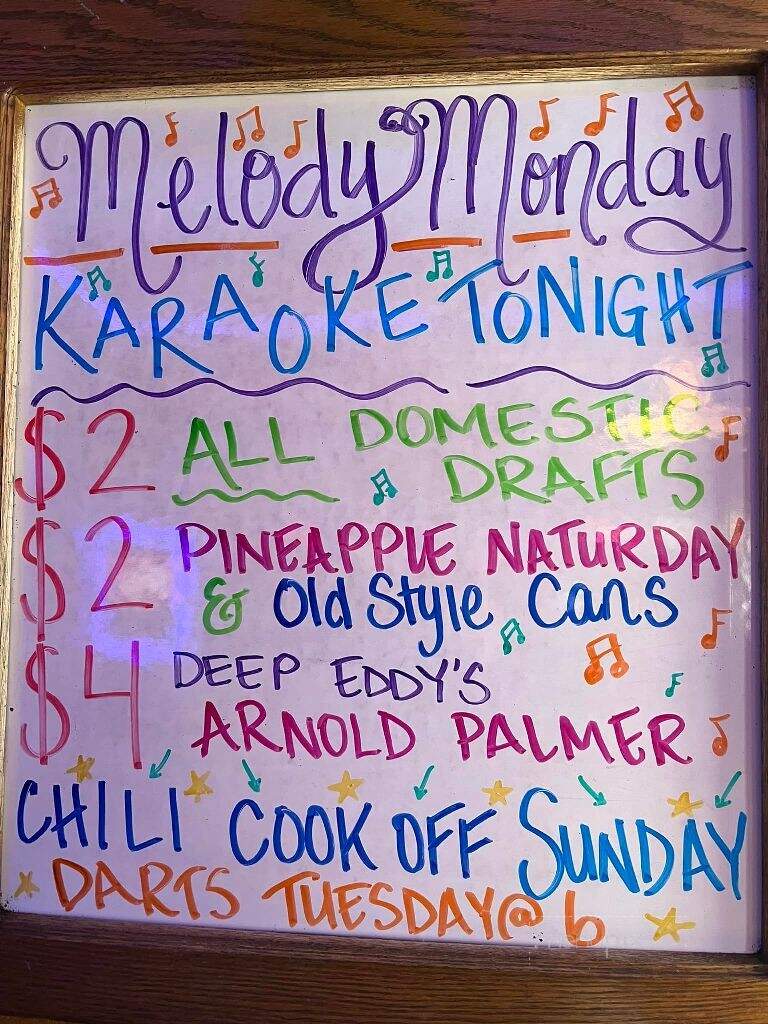 Melody Monday
KARAOKE TONIGHT
$2 ALL DOMESTIC
DRAFTS
$2 PINEAPPLE NATURDAY
& Old Style Cans
$4 DEEP EDDY'S
ARNOLD PALMER
CHILI COOK OFF SUNDAY
DARTS TUESDAY @ 6